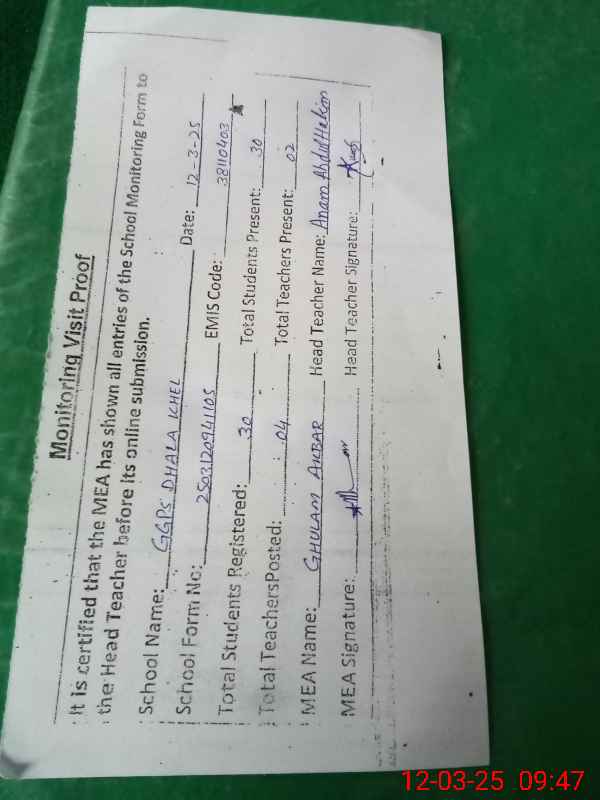 Monitoring Visit Proof
It is certified that the MEA has shown all entries of the School Monitoring Form to
the Head Teacher before its online submission.
School Name: GGPS DHALA KHEL Date: 12-3-25
School Form No: 2503120941105 EMIS Code: 38110403
Total Students Registered: 30 Total Students Present: 30
Total Teachers Posted: 04 Total Teachers Present: 02
MEA Name: GHULAM AKBAR Head Teacher Name: Anam Abdul Hakim
MEA Signature: Head Teacher Signature:
12-03-25 09:47